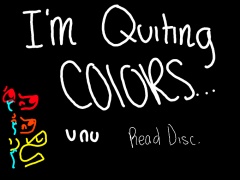 I'm Quiting
COlORS...
unu Read Disc.